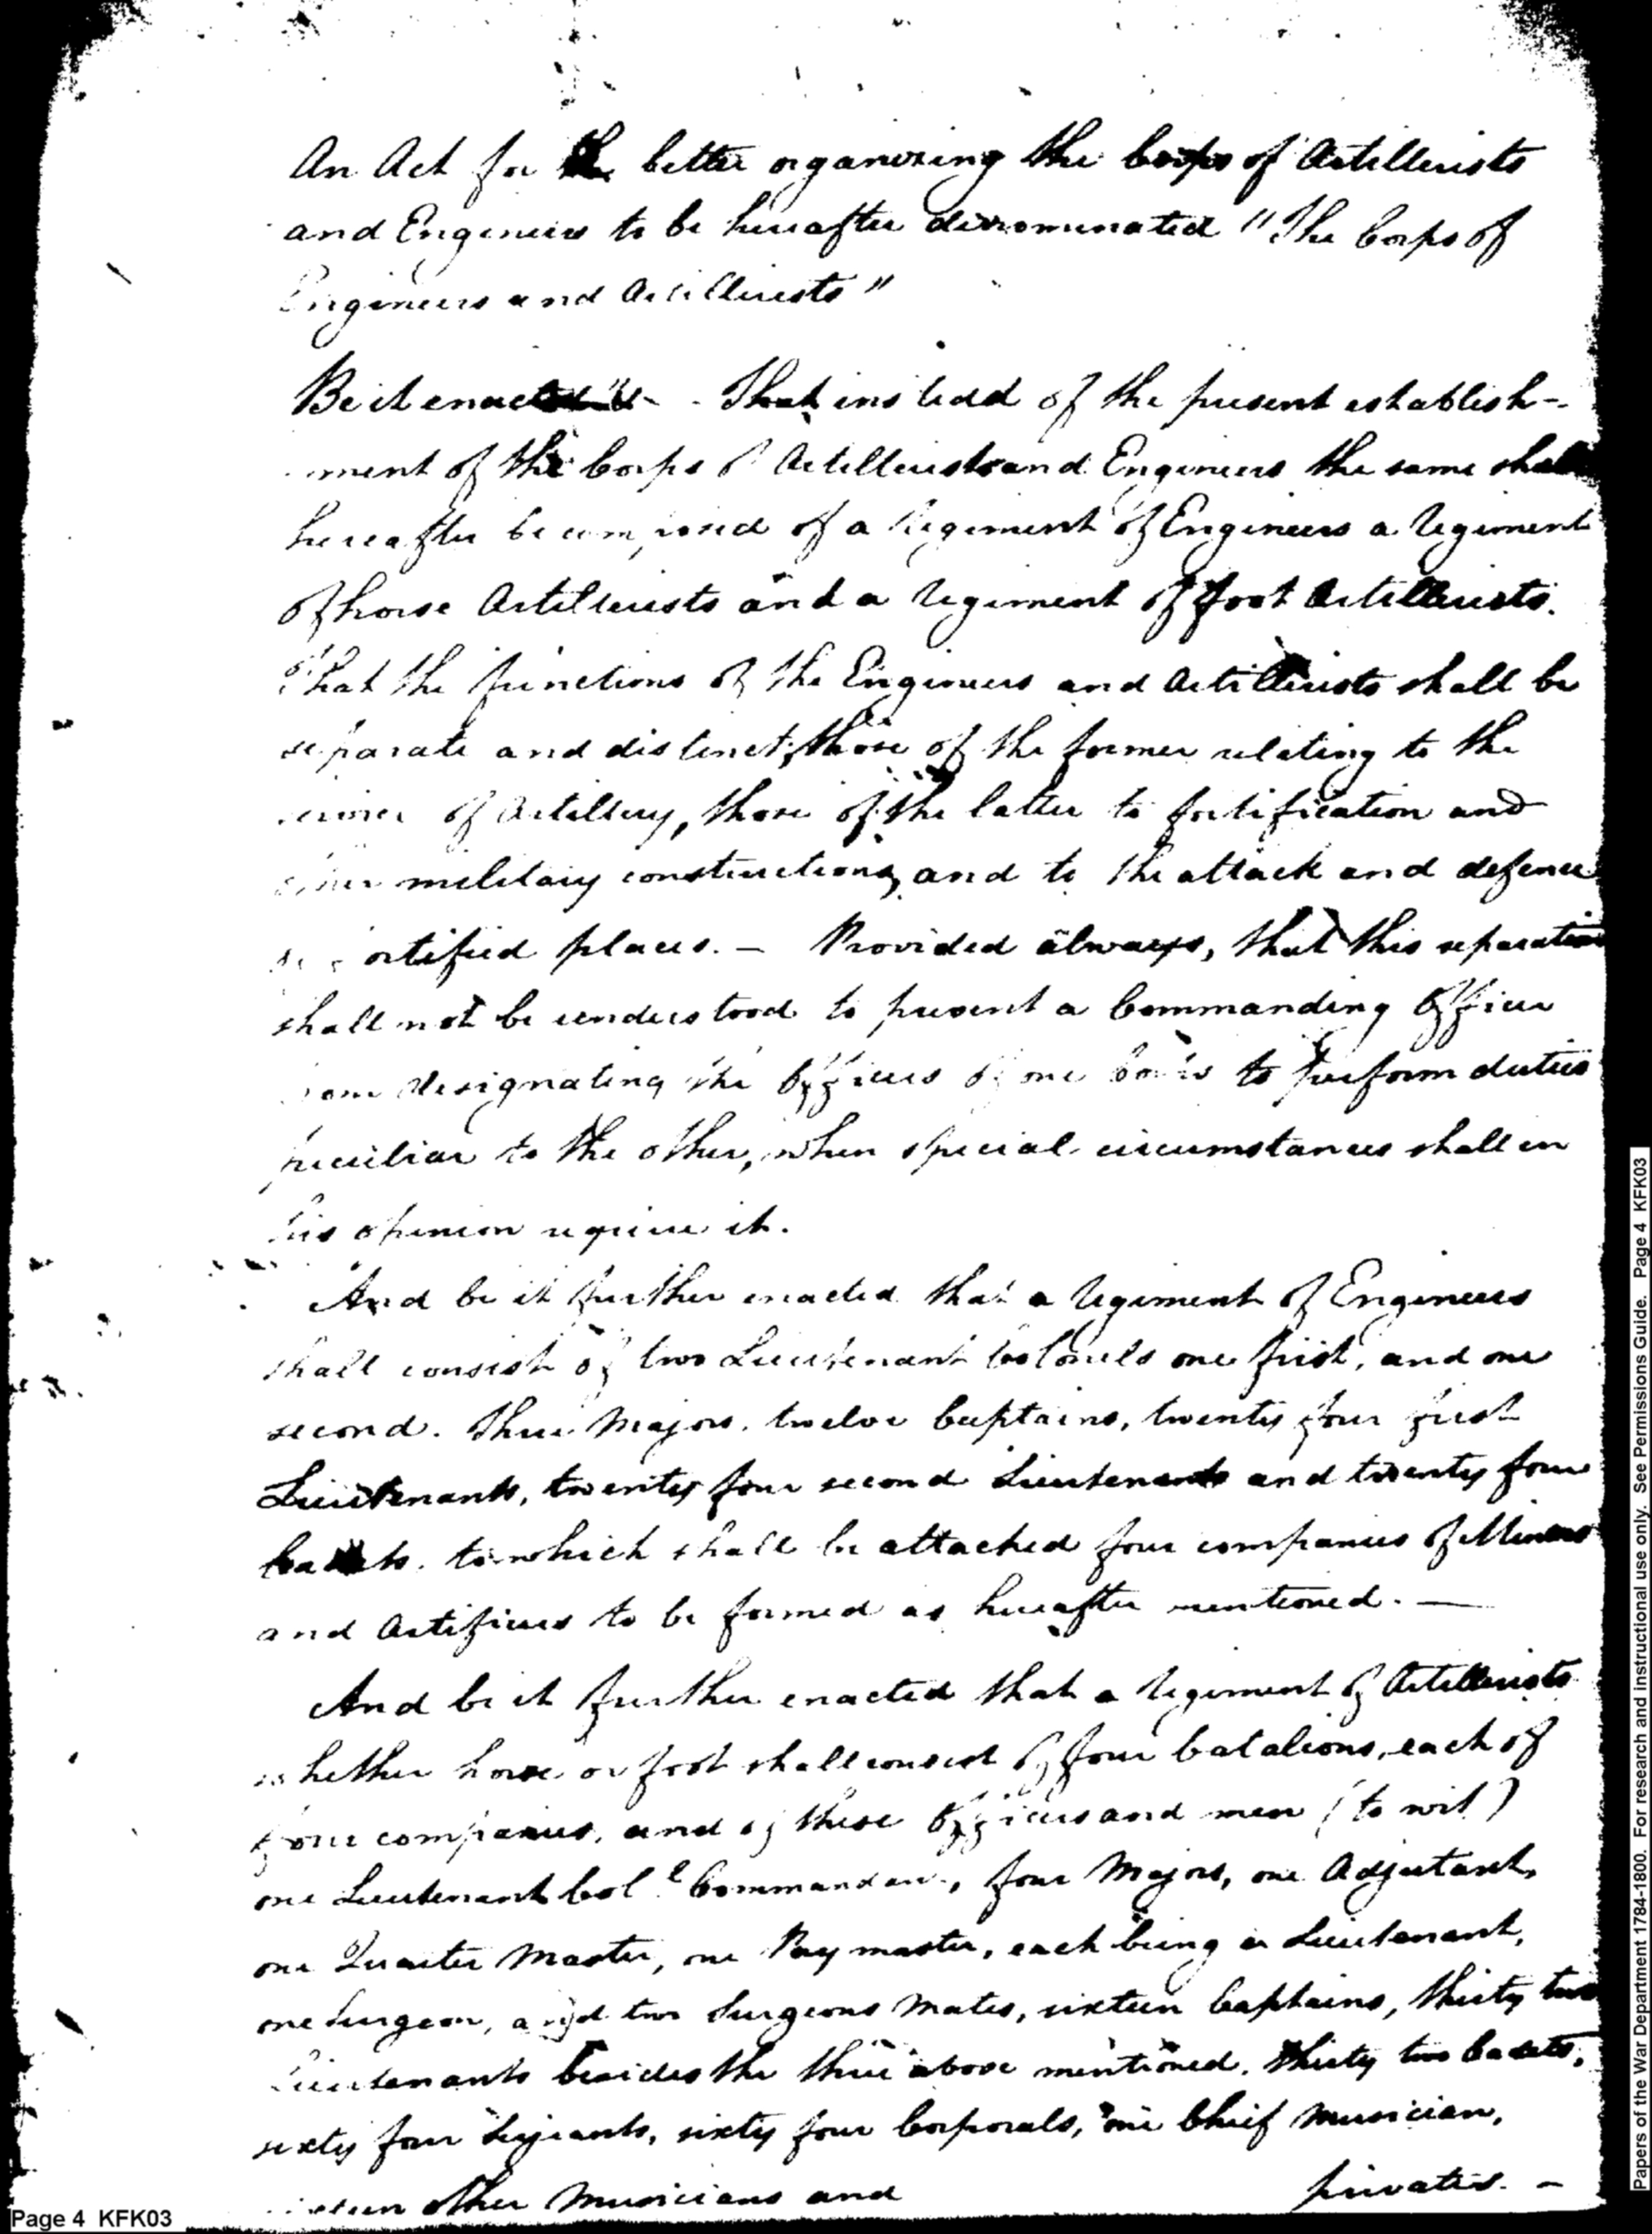 An Act for the better organizing the Corps of Artillerists
and Engineers to be hereafter denominated "The Corps of
Engineers and Artillerists"
Be it enacted &c - That instead of the present establish-
ment of the Corps of Artillerists and Engineers the same shall
hereafter be composed of a Regiment of Engineers a Regiment
of horse Artillerists and a Regiment of foot Artillerists.
That the functions of the Engineers and Artillerists shall be
separate and distinct, those of the former relating to the
service of Artillery, those of the latter to fortification and
other military constructions, and to the attack and defence
of fortified places. - Provided always, that this separation
shall not be understood to prevent a Commanding Officer
from designating the Officers of one Corps to perform duties
peculiar to the other, when special circumstances shall in
his opinion require it.
And be it further enacted that a Regiment of Engineers
shall consist of two Lieutenant Colonels one first, and one
second. three Majors. twelve Captains, twenty four first
Lieutenants, twenty four second Lieutenants and twenty four
Cadets. to which shall be attached four companies of Miners
and Artificers to be formed as hereafter mentioned. —
And be it further enacted that a Regiment of Artillerists
whether horse or foot shall consist of four batalions, each of
four companies, and of these Officers and men (to wit)
one Lieutenant Col.l Commandant, four Majors, one Adjutant,
one Quarter Master, one Pay master, each being a Lieutenant,
one Surgeon, and two Surgeons Mates, sixteen Captains, thirty two
Lieutenants besides the three above mentioned. thirty two Cadets,
sixty four Serjeants, sixty four Corporals, one Chief Musician,
sixteen other Musicians and privates. -
Page 4 KFK03
Papers of the War Department 1784-1800. For research and instructional use only. See Permissions Guide. Page 4 KFK03